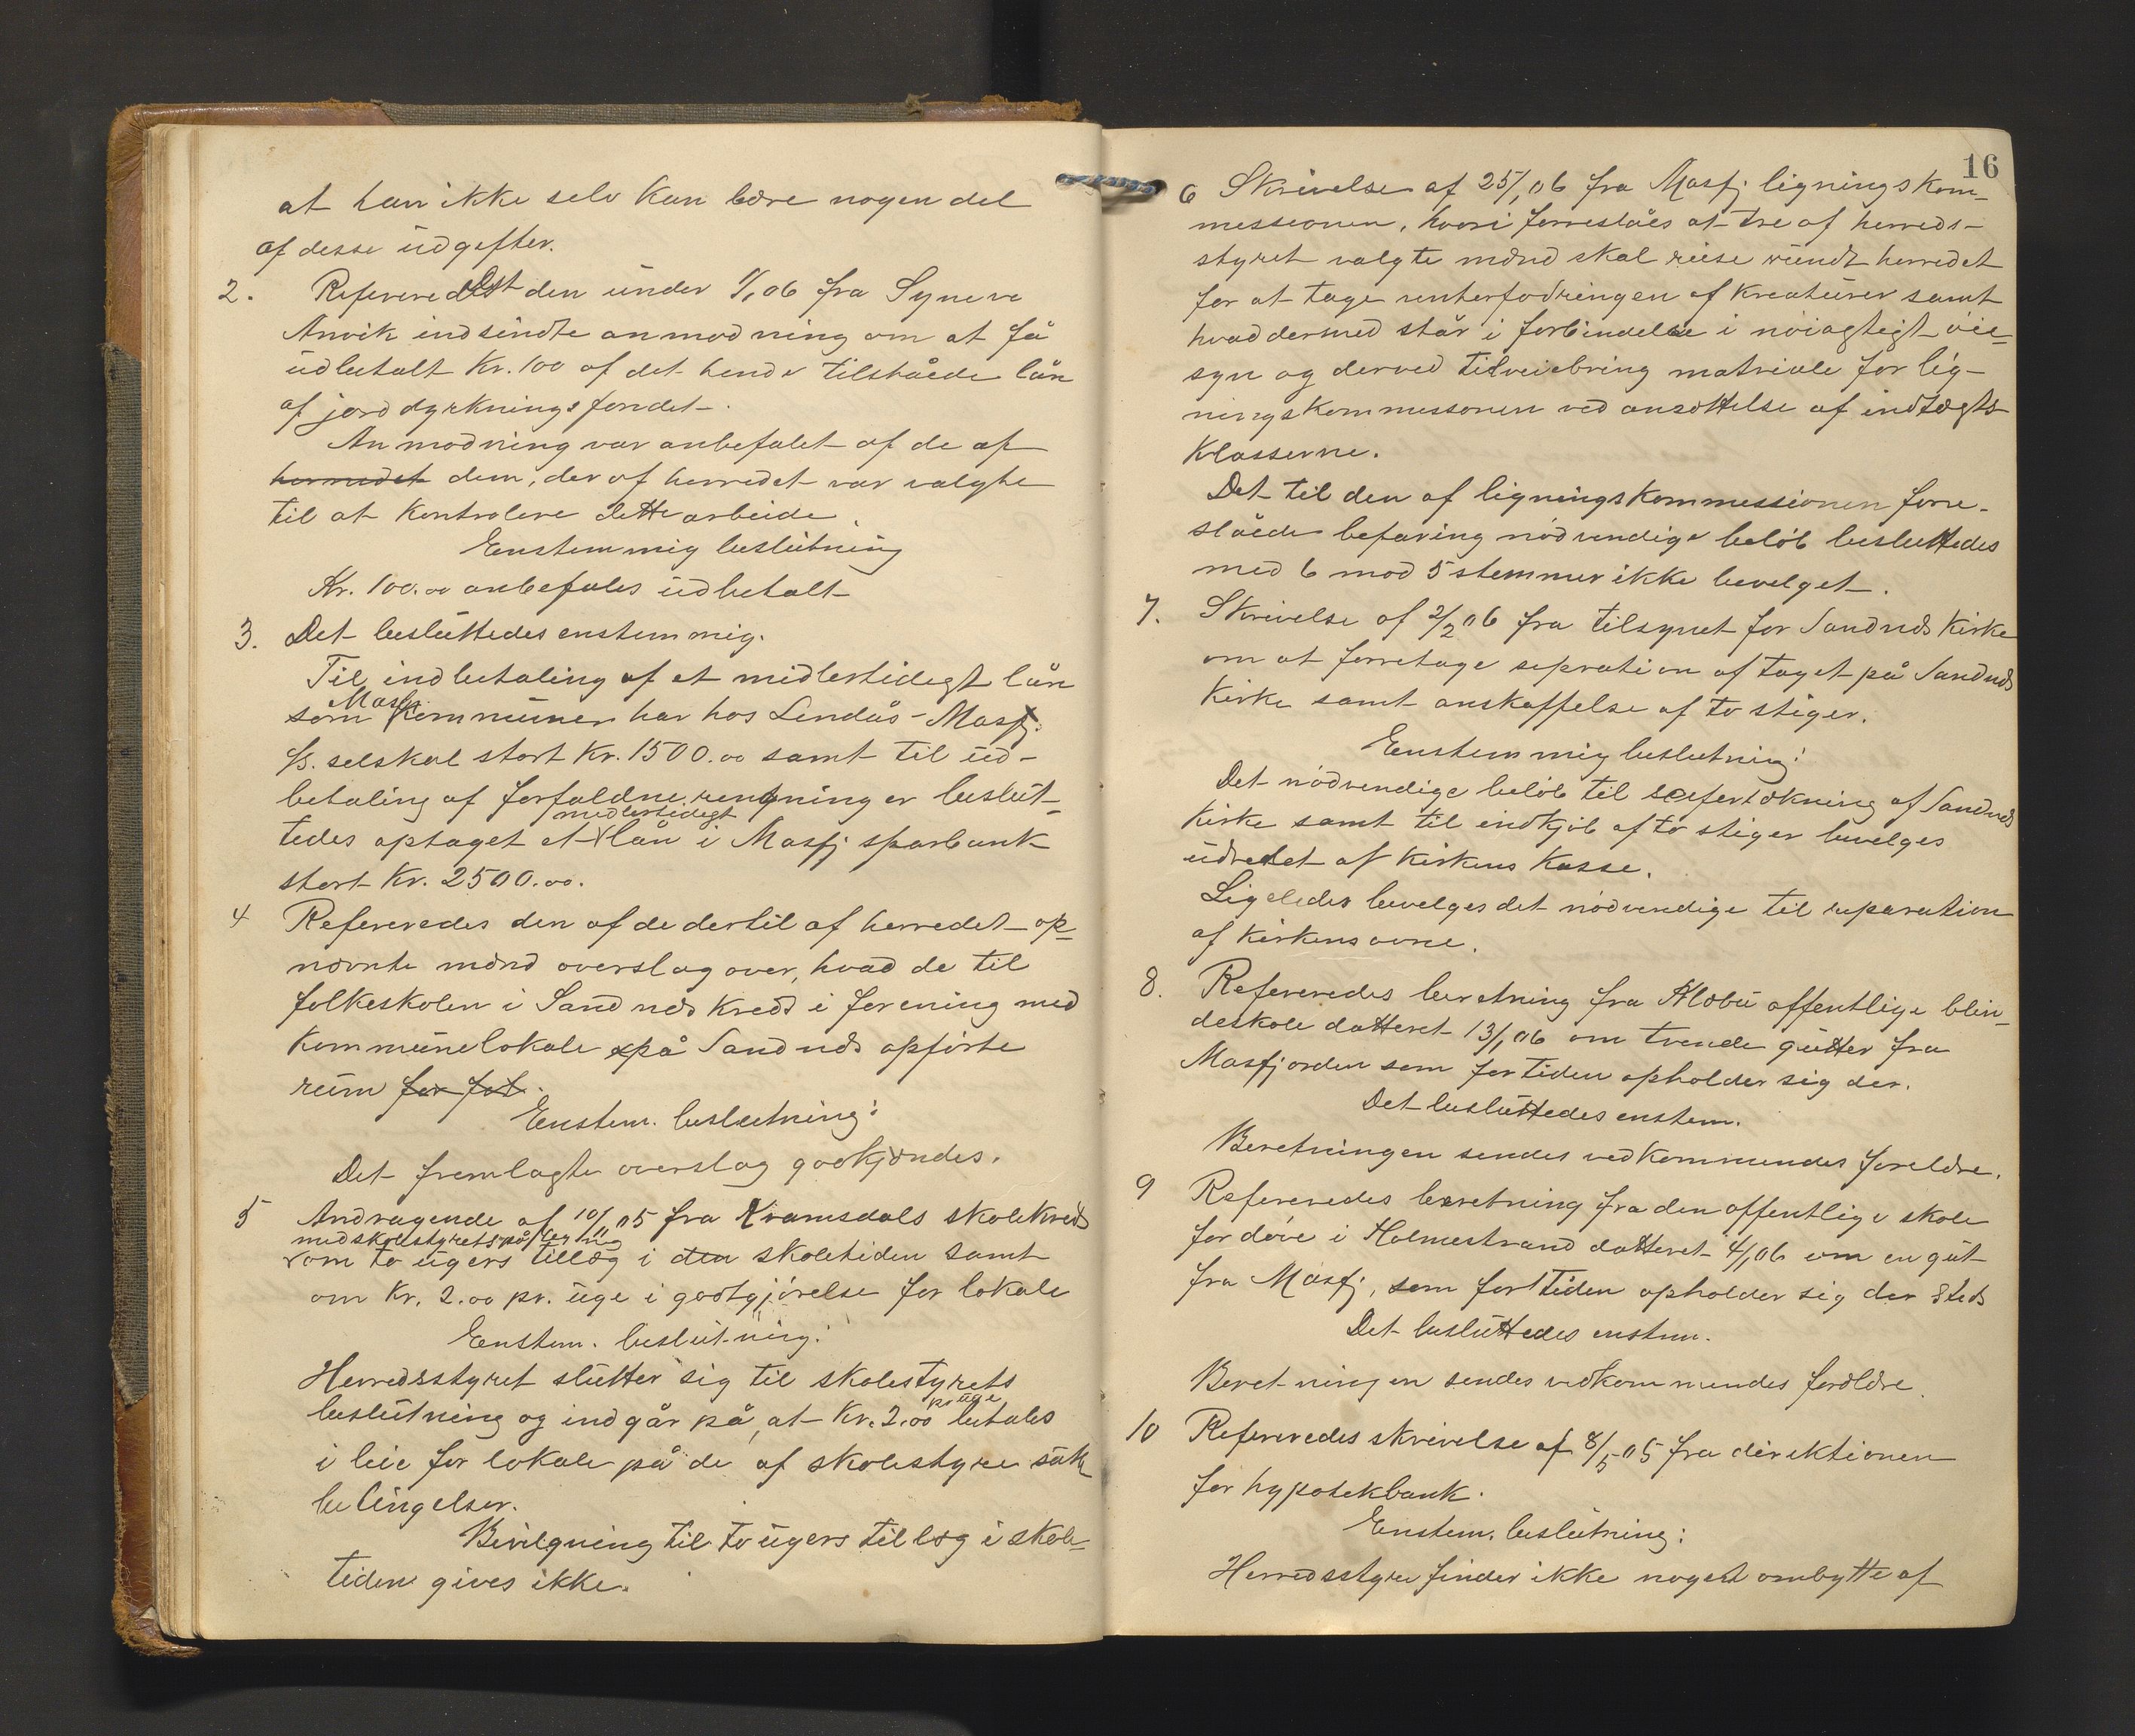 at han ikke selv kan bære nogen del
af desse udgefter.
2. Refereredest den under 1/1 06 fra Syneve
Anvik indsendte anmodning om at få
udbetalt Kr. 100 af det hende tilståede lån
af jorddyrkningsfondet.
Anmodning var anbefalet af de af
herredet dem, der af herredet var valgte
til at kontrolere dette arbeide.
Eenstemmig beslutning
Kr. 100.00 anbefales udbetalt
3. Det besluttedes enstemmig.
Til indbetaling af et midlertidegt lån
som Masfj kommunen har hos Lindås-Masfj.
D/S. selskal stort Kr. 1500.00 samt til ud-
betaling af forfaldne regninger beslut-
tedes optaget et medlertidegt lån i Masfj sparbank
stort Kr. 2500.00.
4 Refereredes den af de dertil af herredet op-
nævnte mænd overslag over, hvad de til
folkeskolen i Sandnes kreds i forening med
kommunelokale på Sandnes opførte
rum for fol.
Eenstem. beslutning:
Det fremlagte overslag godkjændes.
5 Andragende af 10/11 05 fra Kvamsdals skolekreds
med skolestyrets påtegning
om to ugers tillæg i den skoletiden samt
om Kr. 2.00 pr. uge i godtgjørelse for lokale
Eenstem. beslutning:
Herredsstyret slutter sig til skolestyrets
beslutning og indgår på, at Kr. 2.00 pr uge betales
i leie for lokale på de af skolestyre satte
betingelser.
Bevilgning til to ugers tillæg i skole-
tiden gives ikke.
16
6 Skrivelse af 25/1 06 fra Masfj ligningskom-
messionen, hvori forreslåes at tre af herreds-
styret valgte mænd skal reise rundt herredet
for at tage venterfodringen af kreaturer samt
hvad dermed står i forbindelse i nøiagtigt øie-
syn og derved tilveiebring matriale for lig-
ningskommessonen ved ansættelse af indtægts-
klasserne.
Det til den af ligningskommessionen forre-
slåede befaring nødvendige beløb besluttedes
med 6 mod 5 stemmer ikke bevelget.
7. Skrivelse af 2/2 06 fra tilsynet for Sandnes kirke
om at forretage sepration af taget på Sandnes
kirke samt anskaffelse af to stiger.
Eenstemmig beslutning:
Det nødvendige beløb til skefertækning af Sandnes
kirke samt til indkjøb af to stiger bevelges
udredet af kirkens kasse.
Ligeledes bevelges det nødvendige til reparation
af kirkens ovne.
8. Refereredes beretning fra Klæbu offentlige blin-
deskole datteret 13/1 06 om tvende gutter fra
Masfjorden som for tiden opholder sig der.
Det besluttedes enstem.
Beretningen sendes vedkommendes foreldre.
9 Refereredes beretning fra den offentlige skole
for døve i Holmestrand datteret 4/1 06 om en gut
fra Masfj, som for tiden opholder sig der steds
Det besluttedes enstem.
Beretningen sendes vedkommendes foreldre.
10 Refereredes skrivelse af 8/5 05 fra direktionen
for hypotekbank.
Eenstem. beslutning:
Herredsstyre finder ikke noget ombytte af